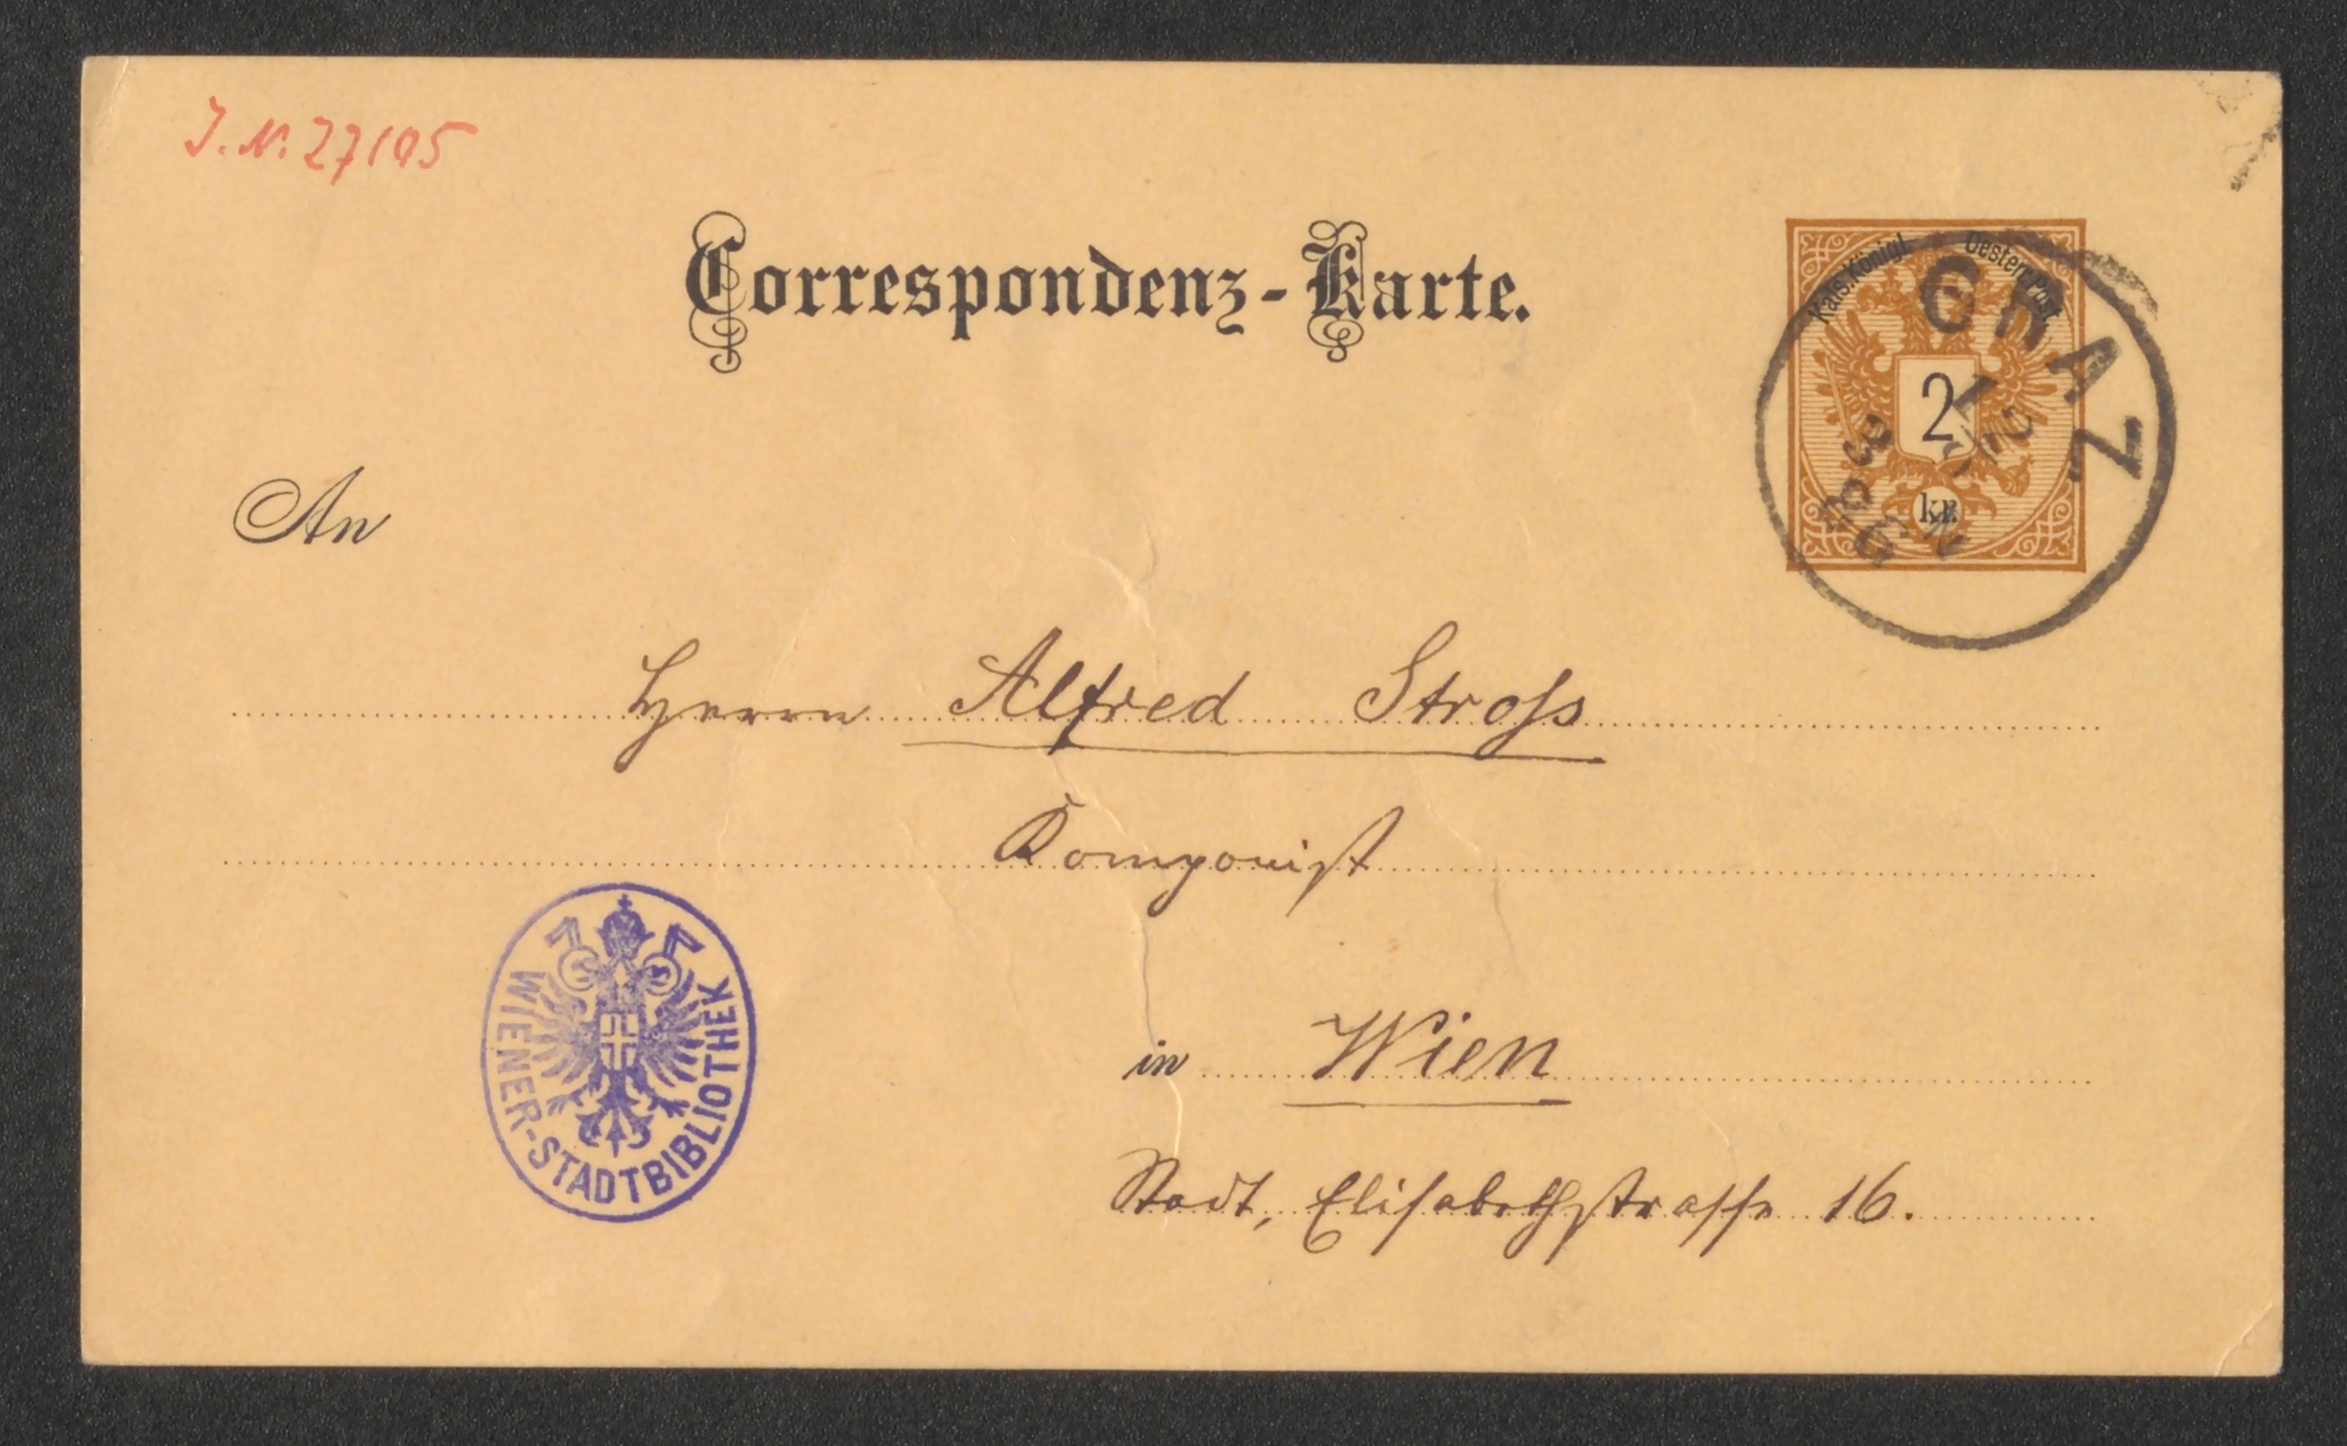 J. N. 27105
Correspondenz-Karte.
Kais. Königl. Oesterr. Post.
2
kr.
GRAZ
An
Herrn Alfred Stross
Komponist
in Wien
Stadt, Elisabethstrasse 16.
WIENER-STADTBIBLIOTHEK